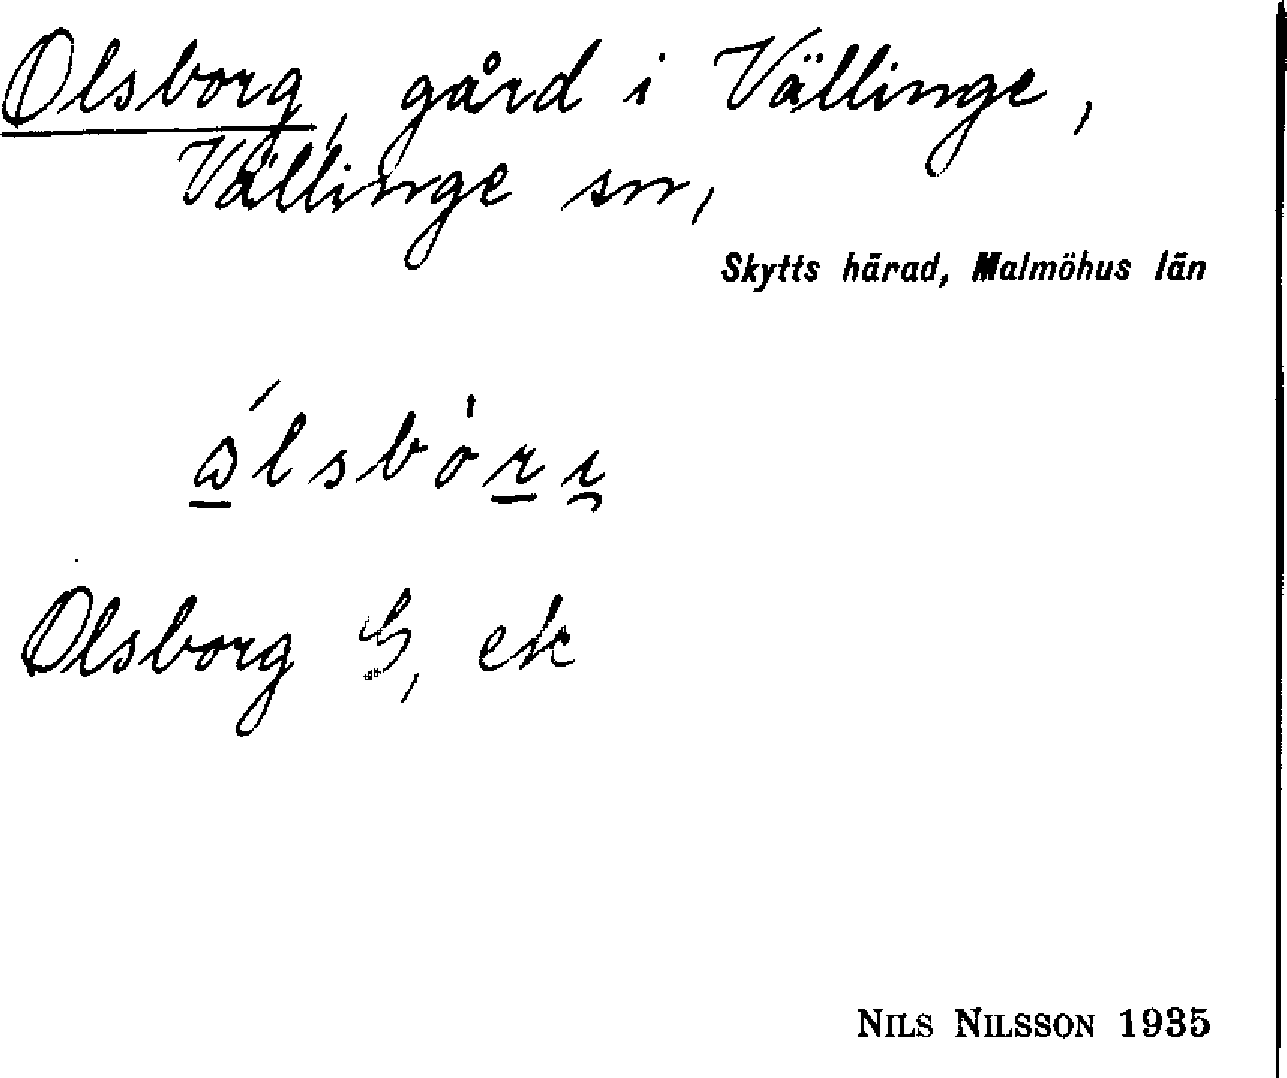 Olsborg, gård i Vällinge,
Vällinge sn,
Skytts härad, Malmöhus län
Olsborg G, ek
NILS NILSSON 1935